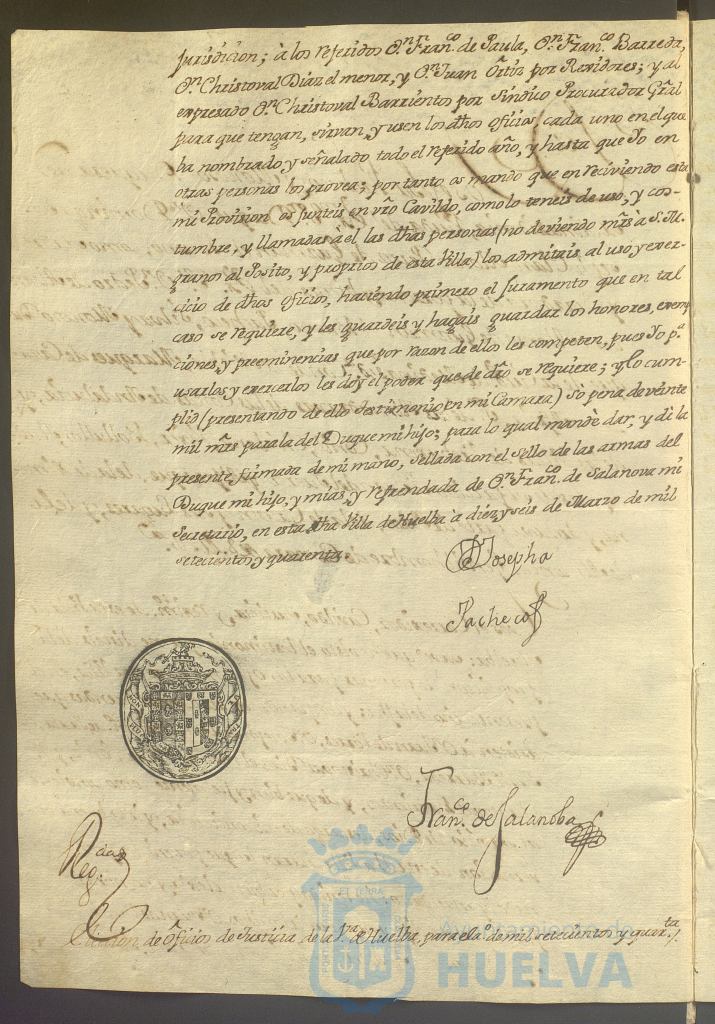 Jurisdicion; à los referidos Dⁿ Fran.ᶜᵒ de Paula, Dⁿ Fran.ᶜᵒ Barreda,
Dⁿ Christoval Diaz el menor, y Dⁿ Juan Ortiz por Rexidores; y al
expresado Dⁿ Christoval Barrientos por Sindico Procurador Gral
para que tengan, sirvan, y usen los dhos oficios cada uno en el que
ba nombrado, y señalado todo el referido año, y hasta que Yo en
otras personas los provea; por tanto os mando que en reciviendo esta
mi Provision os junteis en vrõ Cavildo, como lo teneis de uso, y cos-
tumbre, y llamadas à el las dhas personas (no deviendo mrs à S. M.
granos al Posito, y proprios de esta Villa) los admitais al uso y exer-
cicio de dhos oficios, haciendo primero el Juramento que en tal
caso se requiere, y les guardeis y hagais guardar los honores, exemp
ciones, y preeminencias que por razon de ellos les competen, pues Yo pᵃ
usarlos y exercerlos les doy el poder que de dro se requiere; y lo cum-
plid (presentando de ello testimonio en mi Camara) só pena de veinte
mil mrs para la del Duque mi hijo; para lo qual mandè dar, y di la
presente firmada de mi mano, sellada con el sello de las armas del
Duque mi hijo, y mias, y refrendada de Dⁿ Fran.ᶜᵒ de Salanova mi
Secretario, en esta dha Villa de Huelba à diez y seis de Marzo de mil
setecientos, y quarenta.
Josepha
Pacheco
Fran.ᶜᵒ de Salanoba
Reg.ᶜⁱᵃˢ
de Oficios de Justicia de la V.ᵃ de Huelba, para el a.ᵒ de mil setecientos y quar.ᵗᵃ
HUELVA